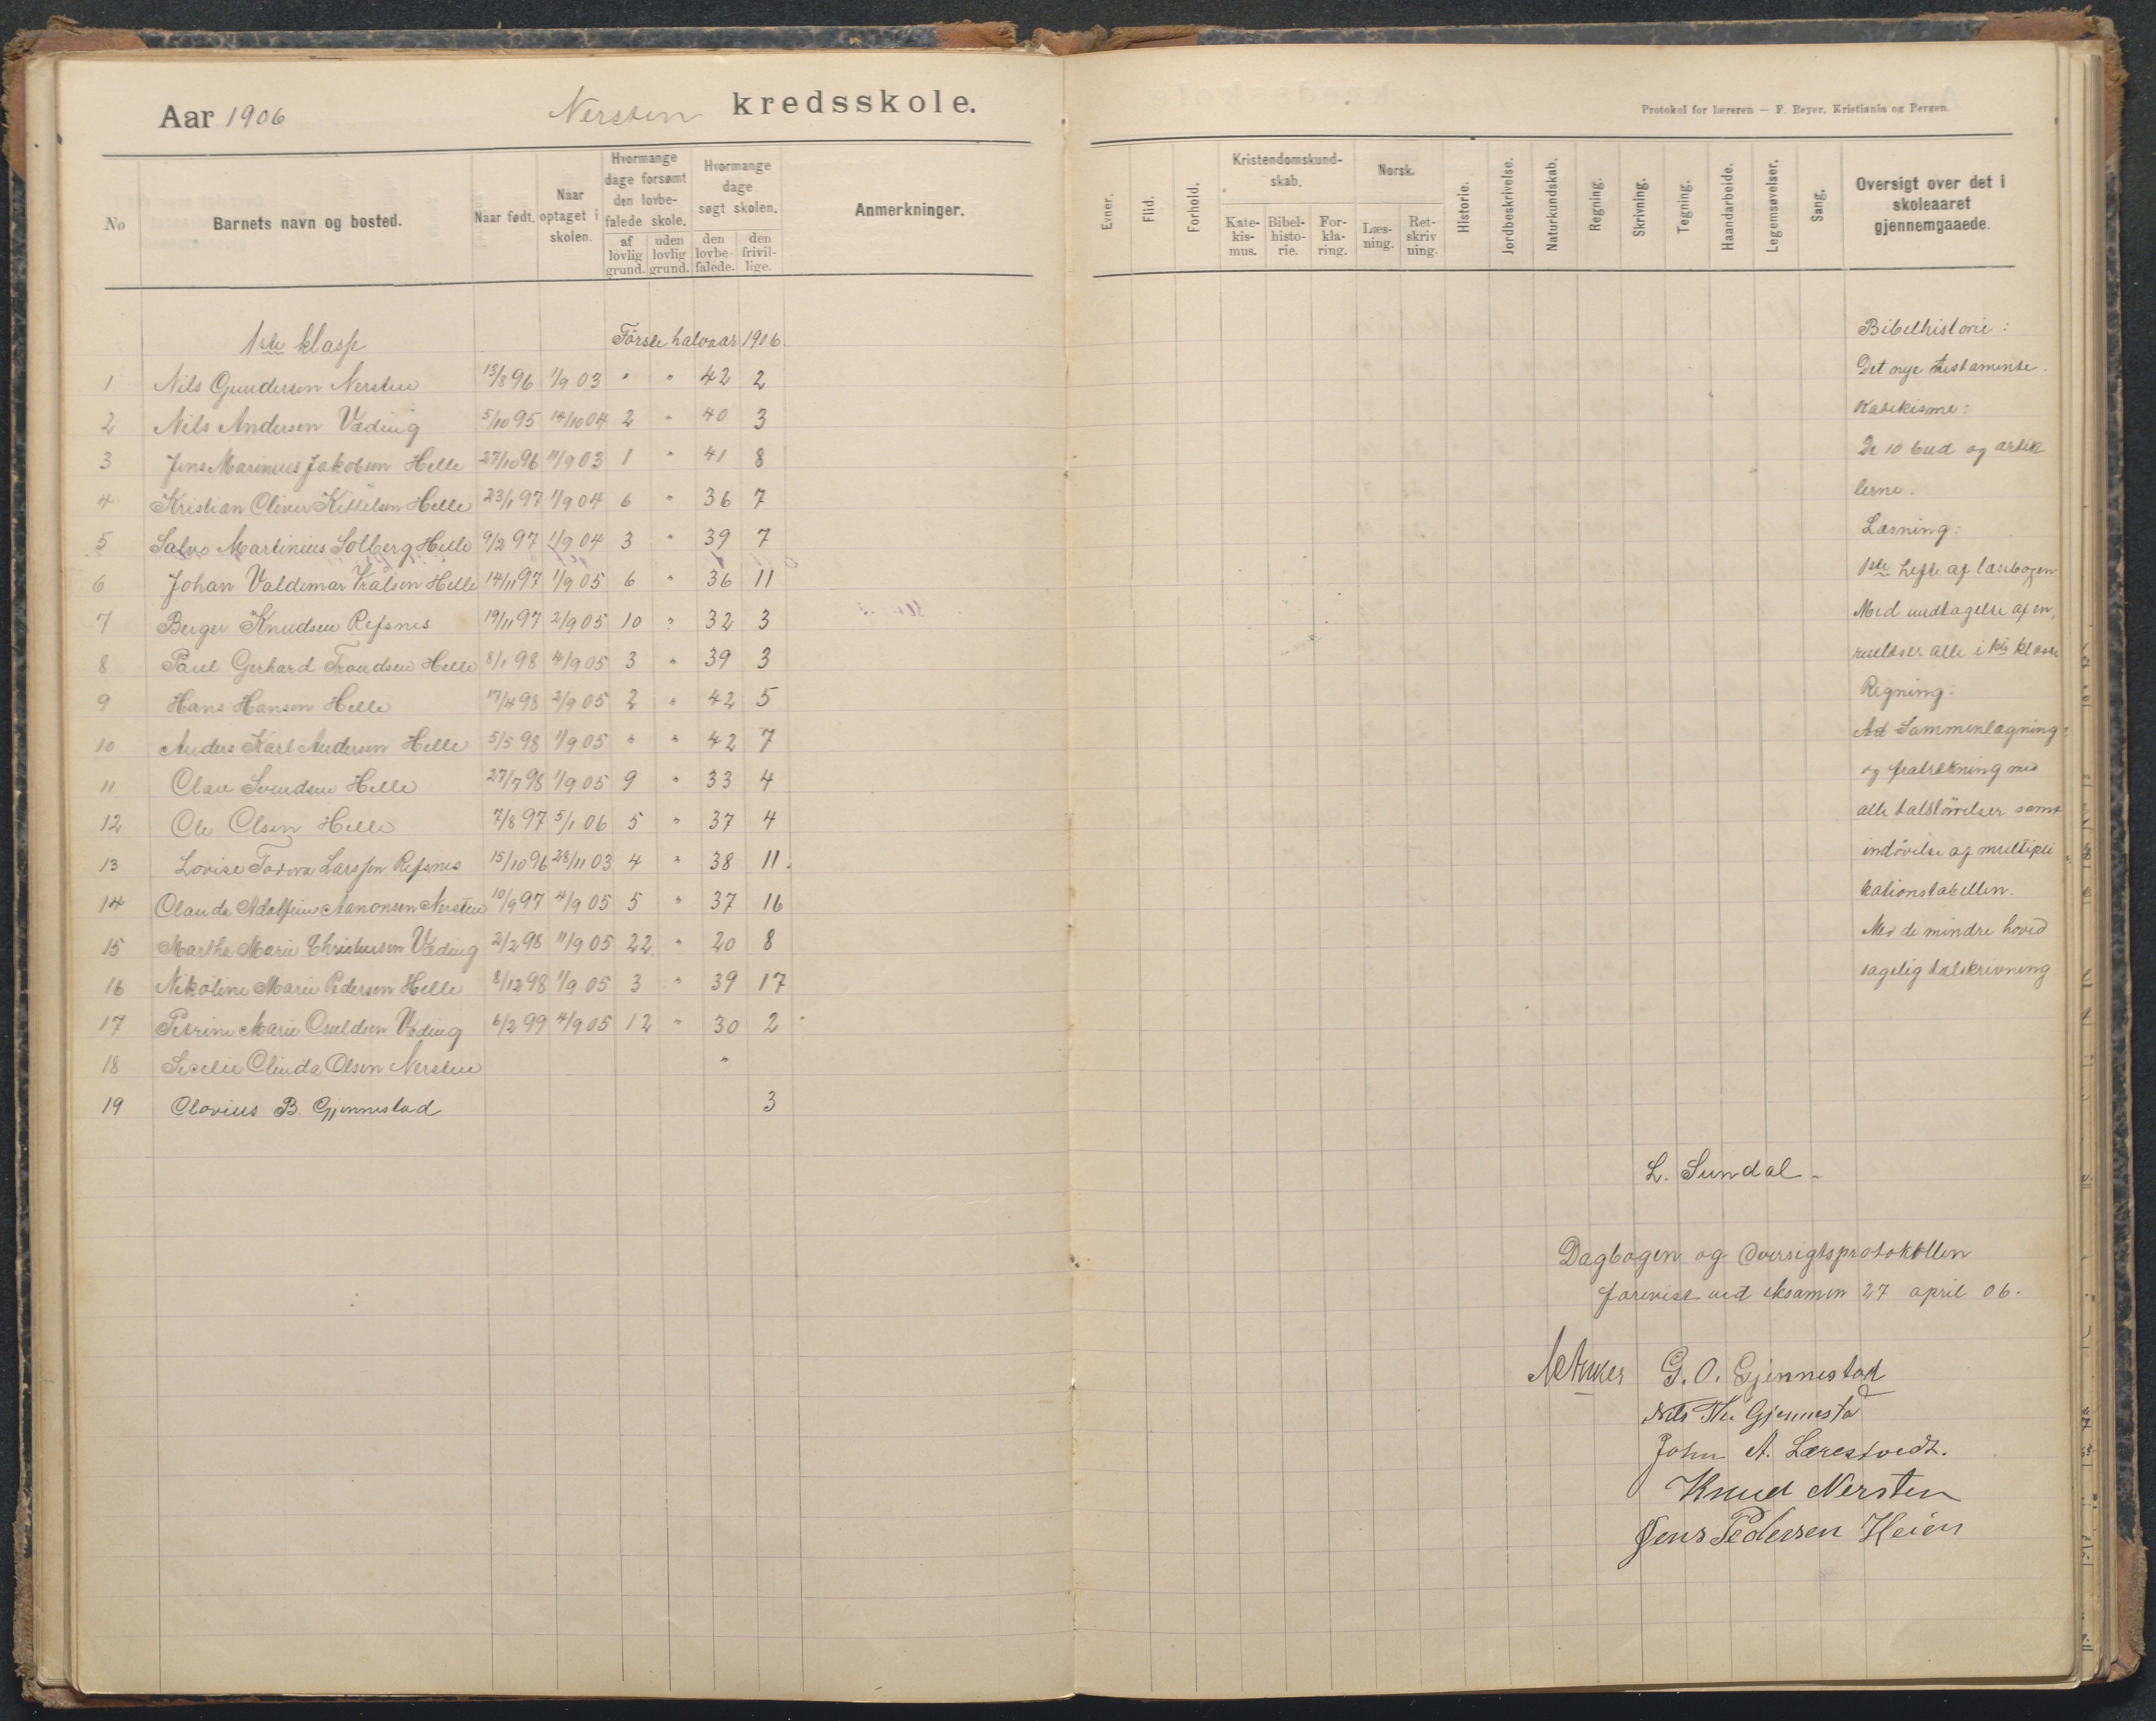 Aar 1906 Nersten kredsskole.
No Barnets navn og bosted. Naar født. Naar optaget i skolen. Hvormange dage forsømt den lovbefalede skole. af lovlig grund. uden lovlig grund. Hvormange dage søgt skolen. den lovbefalede. den frivillige. Anmerkninger.
1ste klasse Förste halvaar 1906.
1 Nils Gundersen Nersten 13/8 96 1/9 03 " " 42 2
2 Nils Andersen Væding 5/10 95 14/10 04 2 " 40 3
3 Jens Marinius Jakobsen Helle 27/10 96 11/9 03 1 " 41 8
4 Kristian Oliver Kittelsen Helle 23/1 97 1/9 04 6 " 36 7
5 Salve Martinius Solberg Helle 9/2 97 1/9 04 3 " 39 7
6 Johan Valdemar Helle 14/11 97 1/9 05 6 " 36 11
7 Berger Knudsen Refsnes 19/11 97 2/9 05 10 " 32 3
8 Paul Gerhard Trondsen Helle 8/1 98 4/9 05 3 " 39 3
9 Hans Hansen Helle 17/4 98 2/9 05 2 " 42 5
10 Anders Karl Andersen Helle 5/5 98 1/9 05 " " 42 7
11 Olav Svendsen Helle 27/7 98 1/9 05 9 " 33 4
12 Ole Olsen Helle 7/8 97 5/1 06 5 " 37 4
13 Lovise Todora Larssen Refsnes 15/10 96 28/11 03 4 " 38 11.
14 Olauda Adolfine Aanonsen Nersten 10/9 97 4/9 05 5 " 37 16
15 Marthe Marie Christensen Væding 2/2 98 11/9 05 22 " 20 8
16 Nikoline Marie Pedersen Helle 8/12 98 1/9 05 3 " 39 17
17 Petrine Marie Osuldsen Væding 6/2 99 4/9 05 12 " 30 2
18 Secelie Olinda Olsen Nersten "
19 Olavius B. Gjennestad 3
Protokol for læreren — F. Beyer. Kristiania og Bergen.
Evner. Flid. Forhold. Kristendomskundskab. Katekismus. Bibelhistorie. Forklaring. Norsk. Læsning. Retskrivning. Historie. Jordbeskrivelse. Naturkundskab. Regning. Skrivning. Tegning. Haandarbeide. Legemsøvelser. Sang. Oversigt over det i skoleaaret gjennemgaaede.
Bibelhistorie:
Det nye testamente.
Katekisme:
De 10 bud og artik
lerne.
Læsning:
1ste hefte af læsebogen
Med undtagelse af en,
alle i klasse
Regning:
Sammenlægning
og fratrækning med
alle talstörrelser samt
indövelse af multipli
kationstabellen.
Med de mindre hoved
sagelig talskrivning
L. Sundal
Dagbogen og Oversigtsprotokollen
forevist ved eksamen 27 april 06.
G. O. Gjennestad
Nils Th. Gjennestad
John A. Lærestvedt.
Knud Nersten
Jens Pedersen Heien